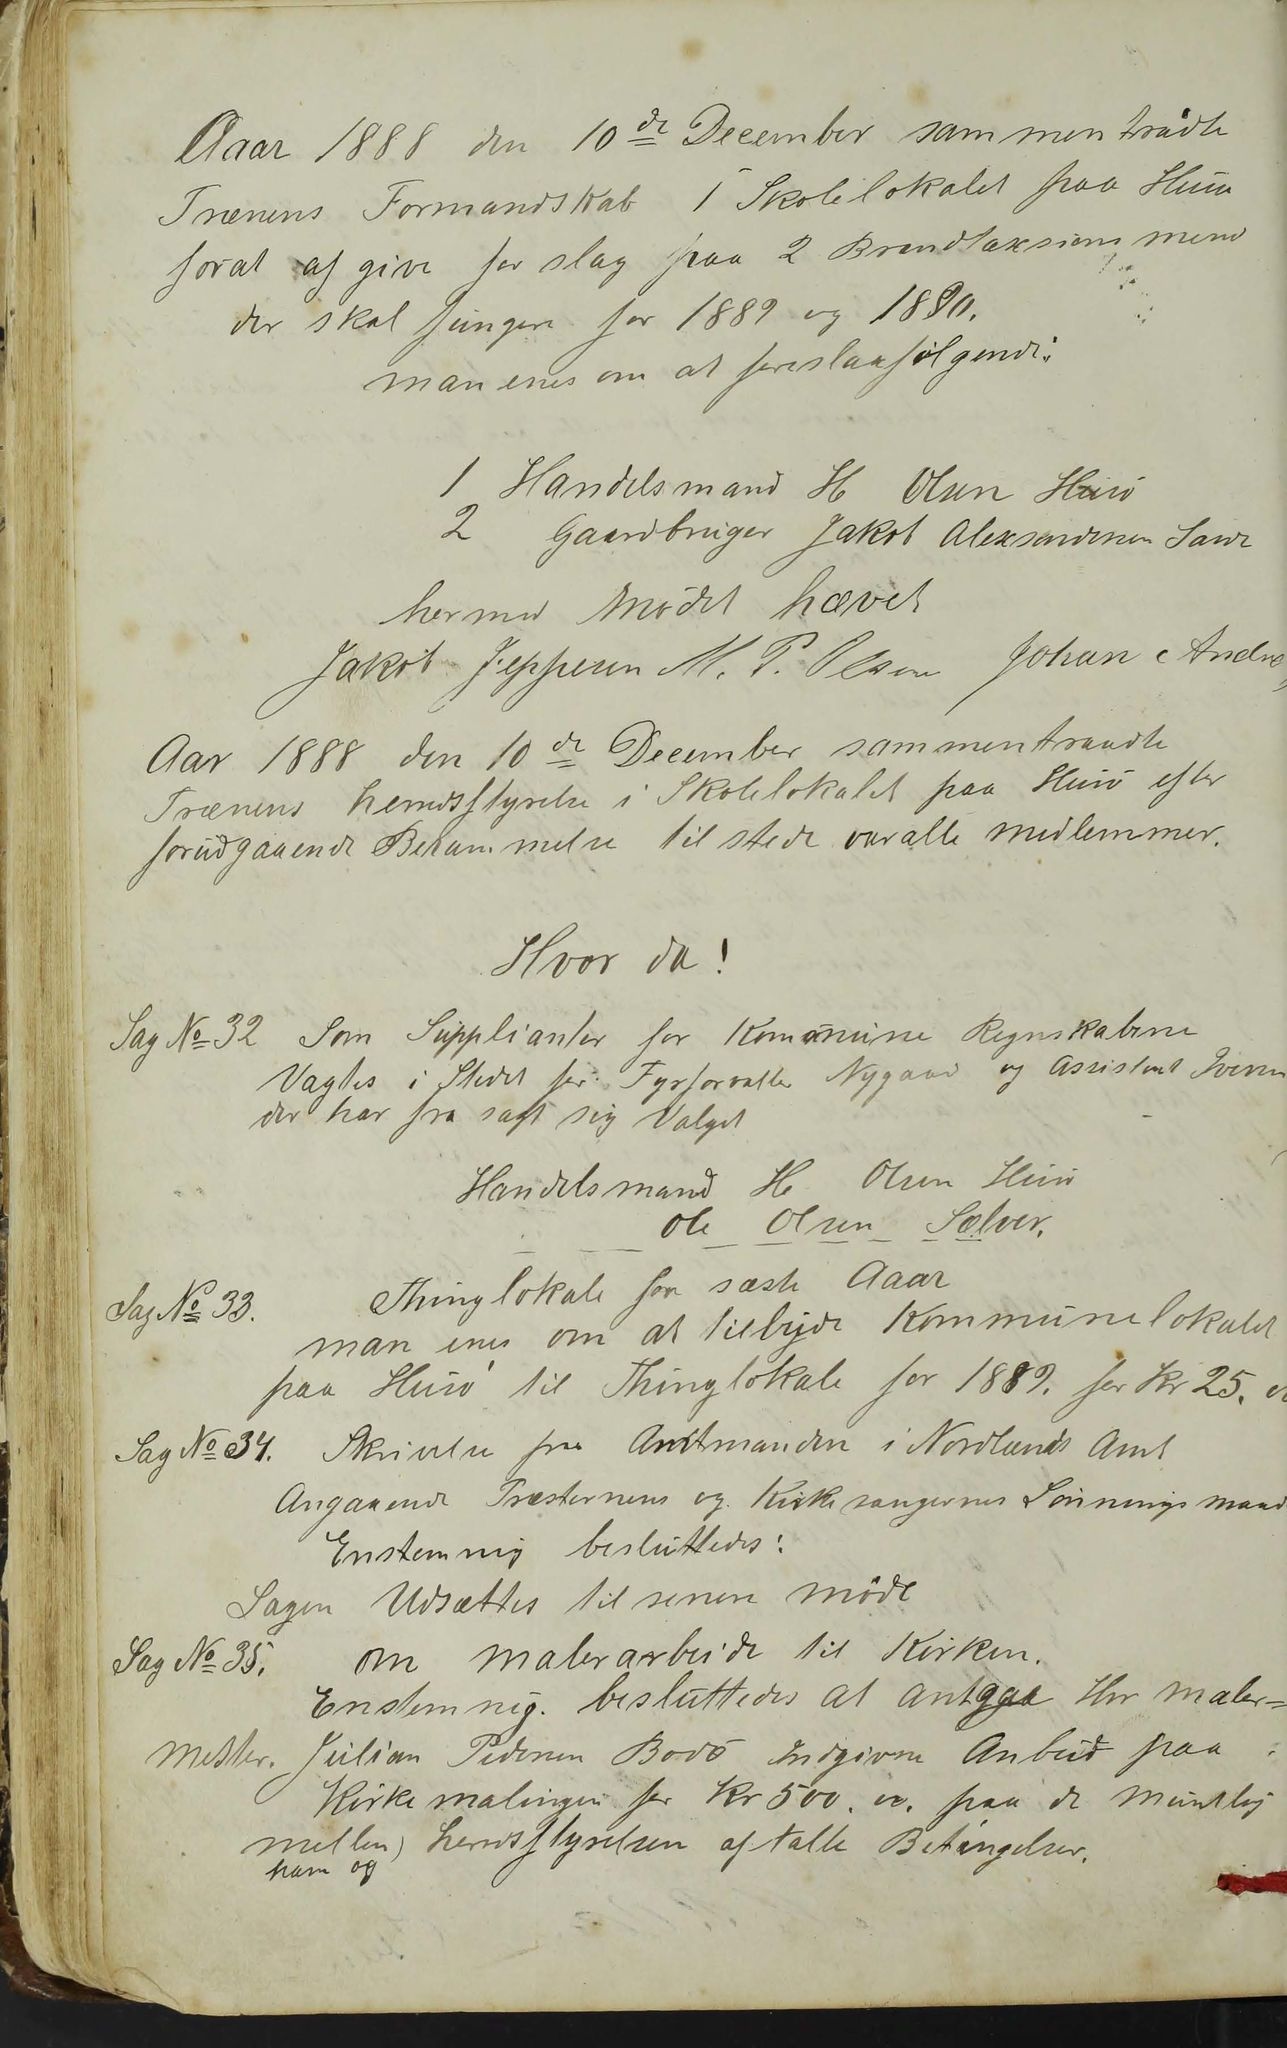 Aaar 1888 den 10de December sammentrådte
Trænens Formandskab i Skolelokalet paa Husø
forat afgive forslag paa 2 Brandtaxsions mend
der skal fungere for 1889 og 1890.
man enes om at foreslaa følgende:
1 Handelsmand H Olsen Husø
2 Gaardbruger Jakob Alexsandersen Sande
hermed Mødet hævet
Jakob Jeppesen M. P. Olsen Johan Andre
Aar 1888 den 10de December sammentraadte
Trænens heredsstyrelse i Skolelokalet paa Husø efter
forudgaaende Berammelse til stede var alle medlemmer.
Hvor da!
Sag No 32 Som Supplianter for Kommune Regnskaberne
Vagtes i Stedet for Fyrforvalter Nygaard og Assistent Iversen
der har fra sagt sig Valget
Handelsmand H. Olsen Husø
Ole Olsen Sælver.
Sag No 33. Thinglokale for næste Aaar
man enes om at tilbyde Kommunelokalet
paa Husø til Thinglokale for 1889. for Kr 25.
Sag No 34. Skrivelse fra Amtmanden i Nordlands Amt
Angaaende Præsternens og Kirkesangernes Lønnings maad
Enstemmig besluttedes:
Sagen Udsættes til senere møde
Sag No 35. om malerarbeide til Kirken.
Enstemmig. besluttedes at antgaa Hr maler=
mester. Julian Pedersen Bodø Indgivne Anbud paa
Kirkemalingen for Kr 500. oo. paa de Mundtlig
mellem) heredsstyrelsen aftalte Betingelser.
ham og